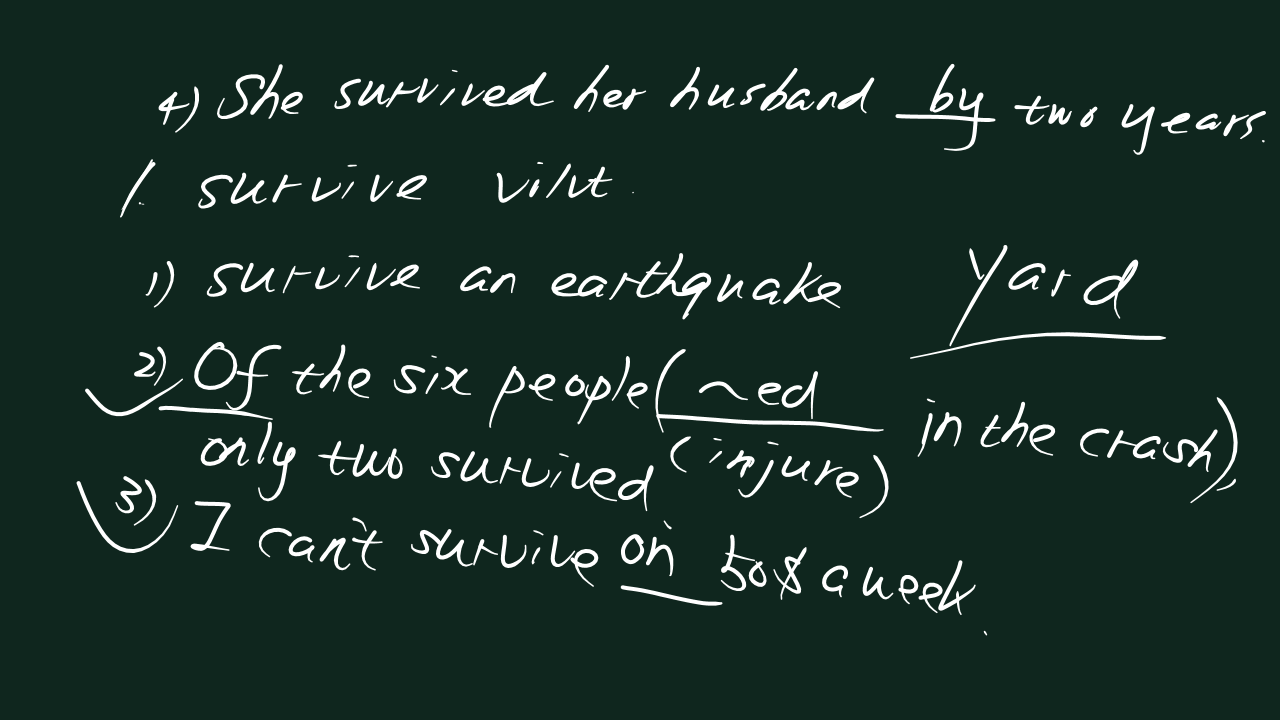 4) She survived her husband by two years.
1. survive vi/vt.
1) survive an earthquake
yard
2) Of the six people (~ed in the crash),
(injure)
only two survived
3) I can't survive on 50$ a week.